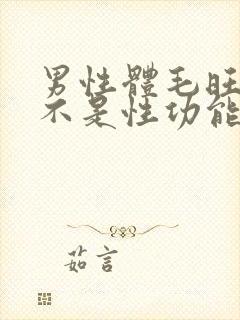 男性體毛旺
不是性功能
茹言